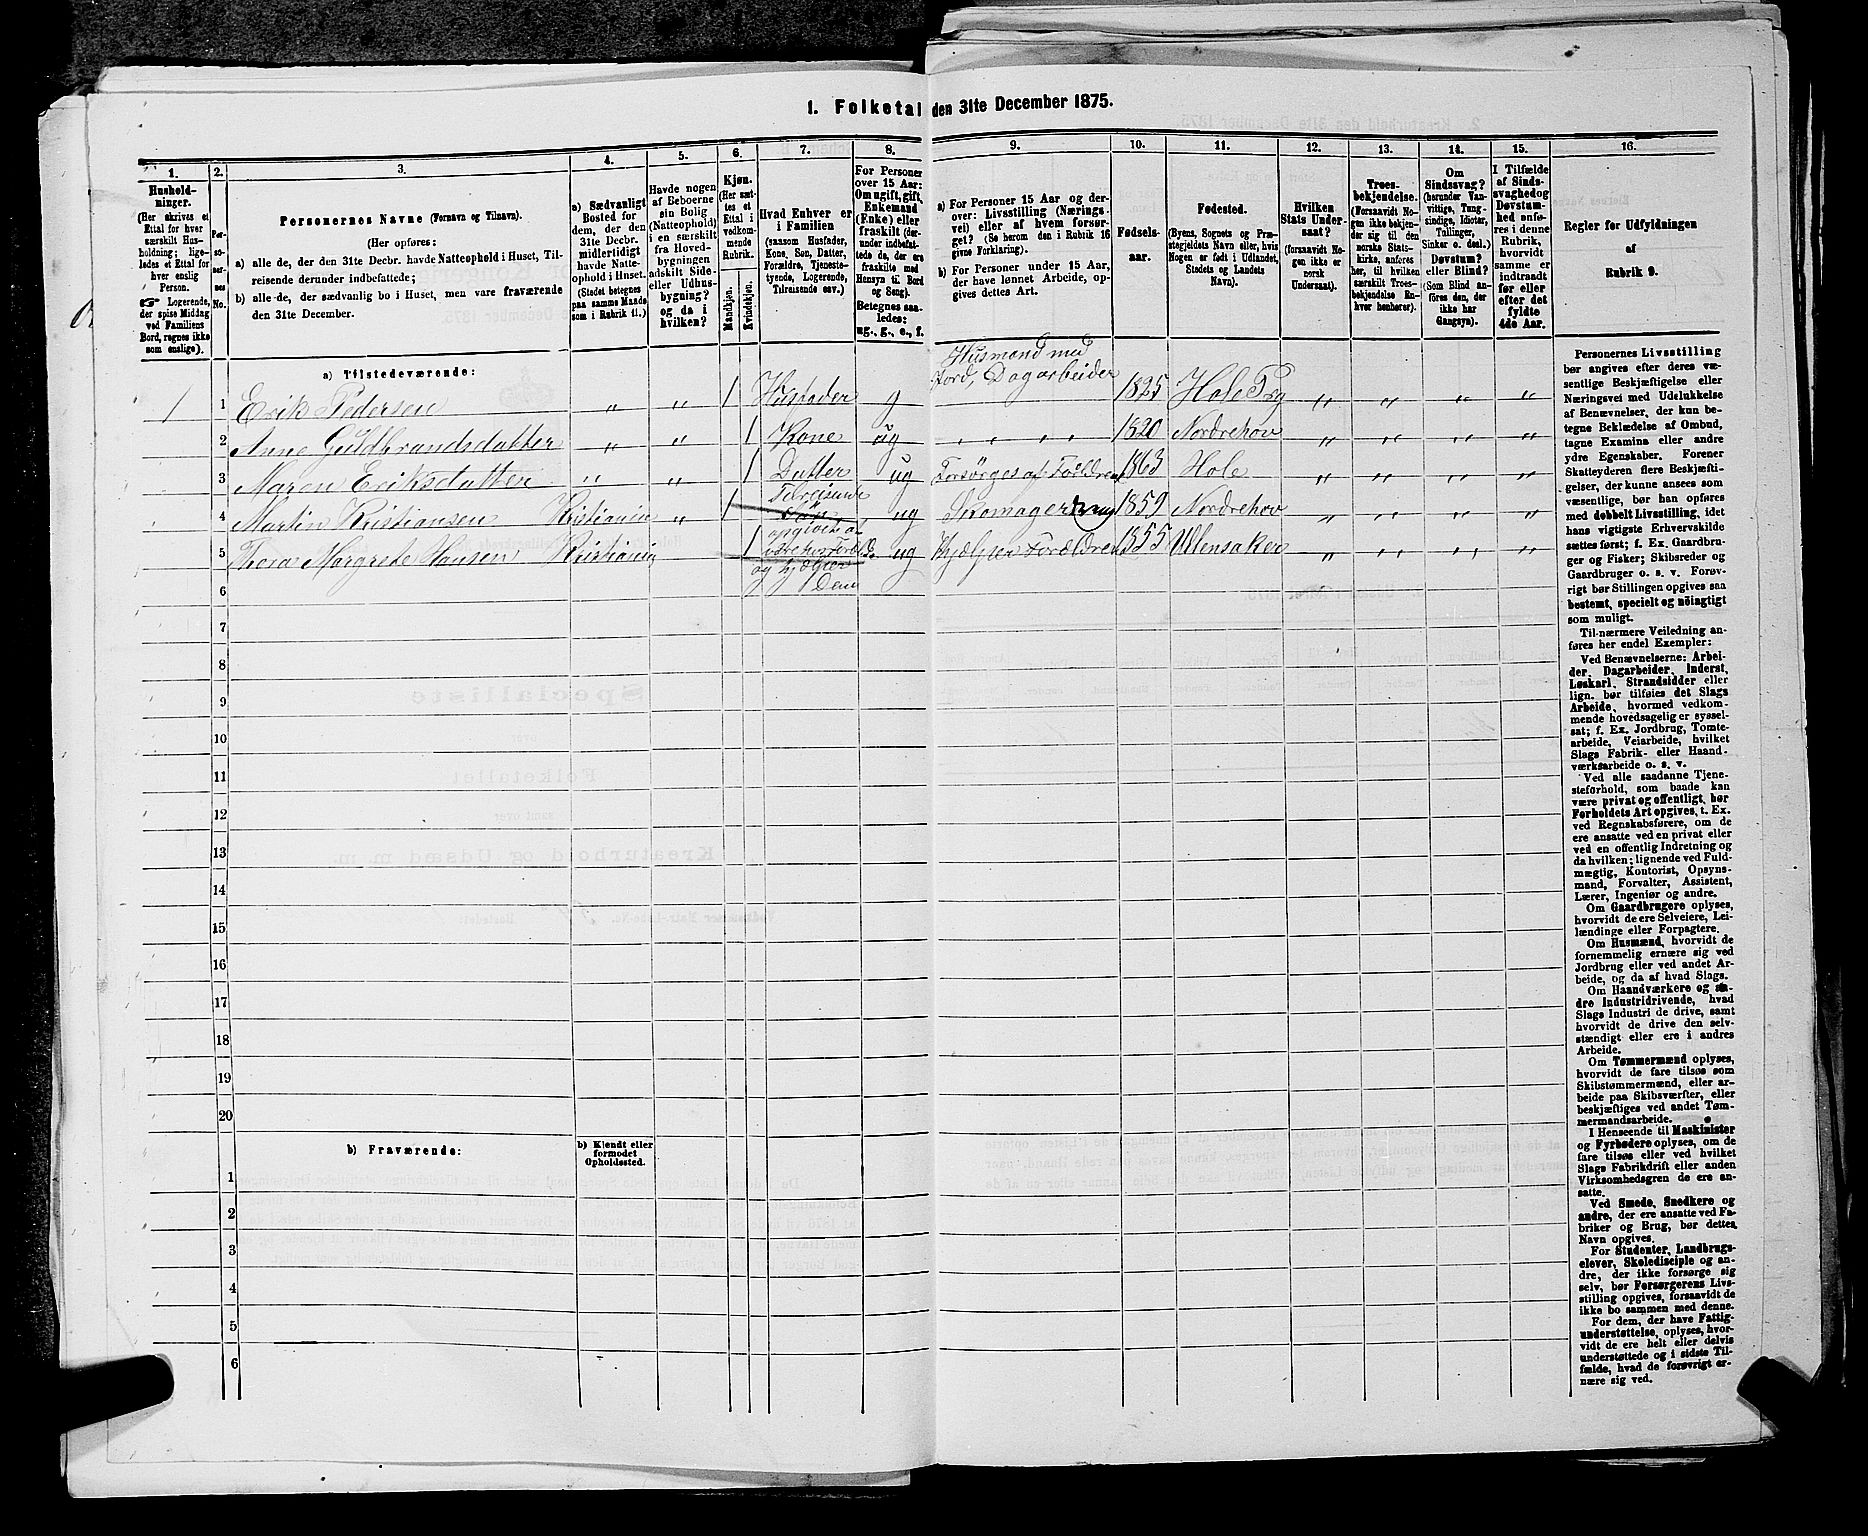 1. Folketal den 31te December 1875.
1. 2. 3. 4. 5. 6. 7. 8. 9. 10. 11. 12. 13. 14. 15. 16.
Hushold-
ninger.
(Her skrives et
Ettal for hver
særskilt Hus-
holdning; lige-
ledes et Ettal for
hver enslig
Person.
☞ Logerende,
der spise Middag
ved Familiens
Bord, regnes ikke
som enslige).
Per-
so-
ner-
nes
No.
Personernes Navne (Fornavn og Tilnavn).
(Her opføres:
a) alle de, der den 31te Decbr. havde Natteophold i Huset, Til-
reisende derunder indbefattede;
b) alle de, der sædvanlig bo i Huset, men vare fraværende
den 31te December.
a) Sædvanligt
Bosted for
dem, der den
31te Decbr.
midlertidigt
havde Natte-
ophold i Huset.
(Stedet betegnes
paa samme Maade
som i Rubrik 11.)
Havde nogen
af Beboerne
sin Bolig
(Natteophold)
i en særskilt
fra Hoved-
bygningen
adskilt Side-
eller Udhus-
bygning?
og da i
hvilken?
Kjøn.
(Her sæt-
tes et
Ettal i
vedkom-
mende
Rubrik.
Mandkjøn.
Kvindekjøn.
Hvad Enhver er
i Familien
(saasom Husfader,
Kone, Søn, Datter,
Forældre, Tjeneste-
tyende, Logerende,
Tilreisende osv.)
For Personer
over 15 Aar:
Om ugift, gift,
Enkemand
(Enke) eller
fraskilt (der-
under indbefat-
tede de, der ere
fraskilte med
Hensyn til Bord
og Seng).
Betegnes saa-
ledes:
ug., g., e., f.
a) For Personer 15 Aar og der-
over: Livsstilling (Nærings-
vei) eller af hvem forsør-
get? (Se herom den i Rubrik 16
givne Forklaring).
b) For Personer under 15 Aar,
der have lønnet Arbeide, op-
gives dettes Art.
Fødsels-
aar.
Fødested.
(Byens, Sognets og Præ-
stegjeldets Navn eller, hvis
Nogen er født i Udlandet,
Stedets og Landets
Navn).
Hvilken
Stats Under-
saat?
(forsaavidt No-
gen ikke er
norsk
Undersaat).
Troes-
bekjendelse.
(Forsaavidt No-
gen ikke bekjen-
der sig til den
norske Stats-
kirke, anføres
her, til hvilken
særskilt Troes-
bekjendelse En-
hver henhører).
Om
Sindssvag?
(herunder Van-
vittige, Tung-
sindige, Idioter,
Tullinger,
Sinker o. desl.)
Døvstum?
eller Blind?
(Som Blind an-
føres den, der
ikke har
Gangsyn).
I Tilfælde
af Sinds-
svaghed og
Døvstum-
hed anfø-
res i denne
Rubrik,
hvorvidt
samme er
indtraadt
før eller
efter det
fyldte
4de Aar.
Regler for Udfyldningen
af
Rubrik 9.
a) Tilstedeværende:
Husmand med
Jord, Dagarbeider
1 1 Erik Pedersen „ „ 1 Husfader g 1825 Hole Prg „ „ „ „
2 Anne Guldbrandsdatter „ „ 1 Kone ug „ „ „ „ 1820 Nordrehov „ „ „ „
3 Maren Eriksdatter „ „ 1 Datter ug Forsørges af Forældrene 1863 Hole „ „ „ „
Tilreisende
4 Martin Kristiansen Kristiania „ 1 Søn ug Skomager 1859 Nordrehov „ „ „ „
5 Thora Margrete Hansen Kristiania 1 ug Hjælper Forældrene 1855 Ullensaker „ „ „ „
og hjælper
Dem
6
7
8
9
10
11
12
13
14
15
16
17
18
19
20
b) Fraværende:
b) Kjendt eller
formodet
Opholdssted.
1
2
3
4
5
6
Personernes Livsstilling
bør angives efter deres væ-
sentlige Beskjæftigelse eller
Næringsvei med Udelukkelse
af Benævnelser, der kun be-
tegne Beklædelse af Ombud,
tagne Examina eller andre
ydre Egenskaber. Forener
Skatteyderen flere Beskjæfti-
gelser, der kunne ansees som
væsentlige, bør han opføres
med dobbelt Livsstilling, idet
hans vigtigste Erhvervskilde
sættes først; f. Ex. Gaardbru-
ger og Fisker; Skibsreder og
Gaardbruger o. s. v. Forøv-
rigt bør Stillingen opgives saa
bestemt, specielt og nöiagtigt
som muligt.
Til nærmere Veiledning an-
føres her endel Exempler:
Ved Benævnelserne: Arbei-
der, Dagarbeider, Inderst,
Løskarl, Strandsidder eller
lign. bør tilføies det Slags
Arbeide, hvormed vedkom-
mende hovedsagelig er syssel-
sat; f. Ex. Jordbrug, Tomte-
arbeide, Veiarbeide, hvilket
Slags Fabrik- eller Haand-
værksarbeide o. s. v.
Ved alle saadanne Tjene-
steforhold, som baade kan
være privat og offentligt, bør
Forholdets Art opgives, t. Ex.
ved Regnskabsførere, om de
ere ansatte ved en privat eller
ved en offentlig Indretning og
da hvilken; lignende ved Fuld-
mægtig, Kontorist, Opsyns-
mand, Forvalter, Assistent,
Lærer, Ingeniør og andre.
Om Gaardbrugere oplyses,
hvorvidt de ere Selveiere, Lei-
lændinge eller Forpagtere.
Om Husmænd, hvorvidt de
fornemmelig ernære sig ved
Jordbrug eller ved andet Ar-
beide, og da af hvad Slags.
Om Haandværkere og an-
dre Industridrivende, hvad
Slags Industri de drive, samt
hvorvidt de drive den selv-
stændigt eller ere i andres
Arbeide.
Om Tømmermænd oplyses,
hvorvidt de fare tilsøs som
Skibstømmermænd, eller ar-
beide paa Skibsværfter, eller
beskjæftiges ved andet Tøm-
mermandsarbeide.
I Henseende til Maskinister
og Fyrbødere oplyses, om de
fare tilsøs eller ved hvilket
Slags Fabrikdrift eller anden
Virksomhedsgren de ere an-
satte.
Ved Smede, Snedkere og
andre, der ere ansatte ved Fa-
briker og Brug, bør dettes
Navn opgives.
For Studenter, Landbrugs-
elever, Skoledisciple og an-
dre, der ikke forsørge sig
selv, bør Forsørgerens Livs-
stilling opgives, forsaavidt de
ikke bo sammen med denne.
For dem, der have Fattig-
understøttelse, oplyses, hvor-
vidt de ere helt eller delvis
understøttede og i sidste Til-
fælde, hvad de forøvrigt er-
nære sig ved.